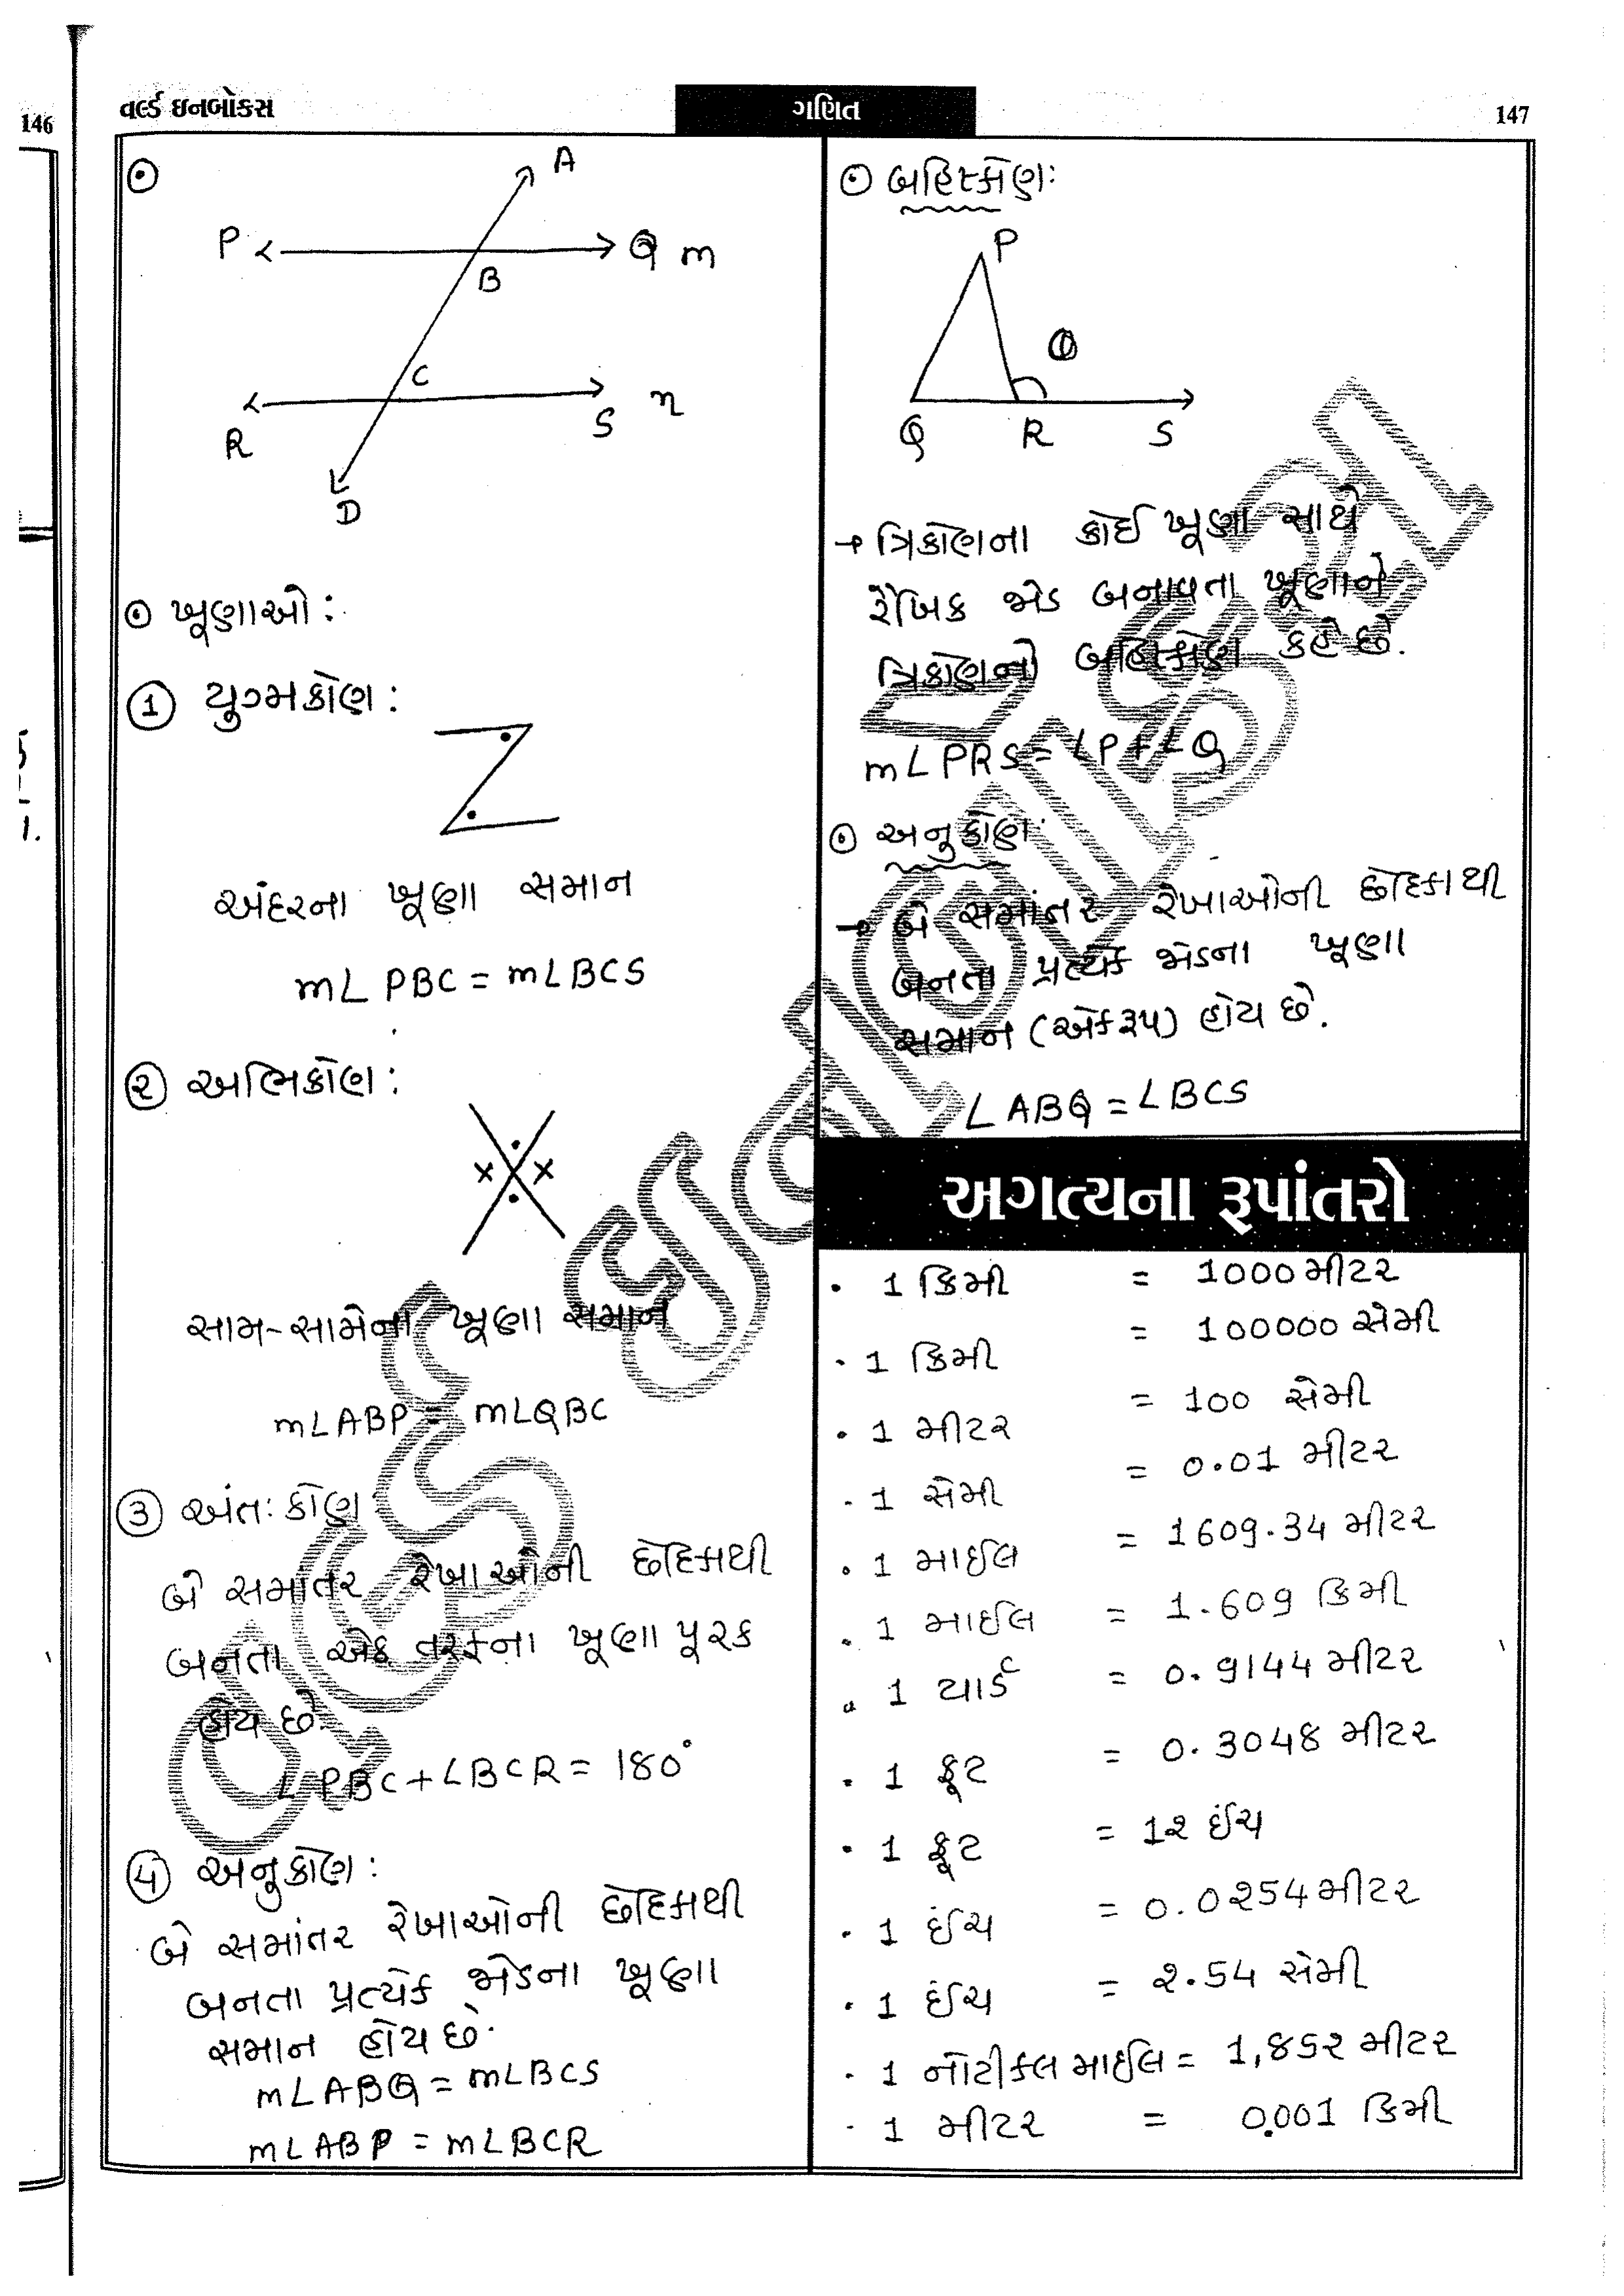 146
વર્લ્ડ ઇનબોક્સ
ગણિત
147
A
P
Q m
B
C
R
S n
D
ખૂણાઓ :
1 યુગ્મકોણ :
અંદરના ખૂણા સમાન
m∠ PBC = m∠BCS
૨ અભિકોણ :
સામ-સામેના ખૂણા સમાન
m∠ABP = m∠QBC
3 અંતઃકોણ
બે સમાંતર રેખાઓની છેદિકાથી
બનતા એક તરફના ખૂણા પૂરક
હોય છે.
∠PBC+∠BCR = 180°
4 અનુકોણ :
બે સમાંતર રેખાઓની છેદિકાથી
બનતા પ્રત્યેક જોડના ખૂણા
સમાન હોય છે.
m∠ABQ = m∠BCS
m∠ABP = m∠BCR
બહિષ્કોણ:
P
θ
Q R S
→ ત્રિકોણના કોઈ ખૂણા સાથે
રૈખિક જોડ બનાવતા ખૂણાને
ત્રિકોણનો બહિષ્કોણ કહે છે.
m∠PRS = ∠P+∠Q
અનુકોણ:
→ બે સમાંતર રેખાઓની છેદિકાથી
બનતા પ્રત્યેક જોડના ખૂણા
સમાન (એકરૂપ) હોય છે.
∠ABQ = ∠BCS
અગત્યના રૂપાંતરો
· 1 કિમી = 1000 મીટર
· 1 કિમી = 100000 સેમી
· 1 મીટર = 100 સેમી
· 1 સેમી = 0.01 મીટર
· 1 માઈલ = 1609.34 મીટર
· 1 માઈલ = 1.609 કિમી
· 1 યાર્ડ = 0.9144 મીટર
· 1 ફૂટ = 0.3048 મીટર
· 1 ફૂટ = 1૨ ઈંચ
· 1 ઈંચ = 0.0૨54 મીટર
· 1 ઈંચ = ૨.54 સેમી
· 1 નોટીકલ માઈલ = 1,85૨ મીટર
· 1 મીટર = 0.001 કિમી
વર્લ્ડ ઇનબોક્સ